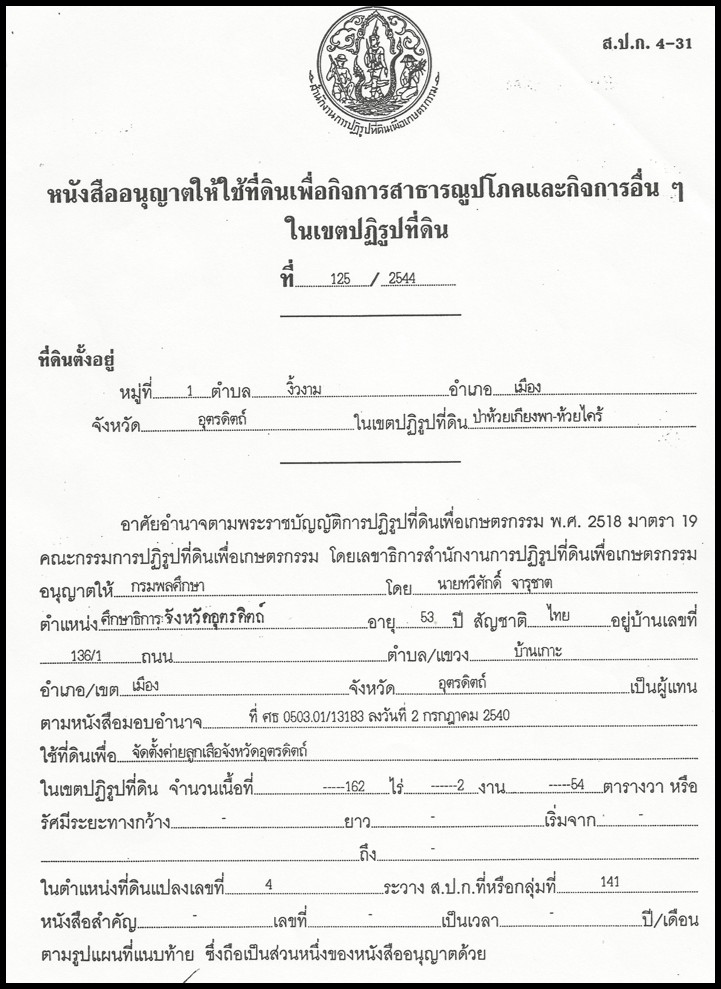 ส.ป.ก. 4-31
สำนักงานการปฏิรูปที่ดินเพื่อเกษตรกรรม
หนังสืออนุญาตให้ใช้ที่ดินเพื่อกิจการสาธารณูปโภคและกิจการอื่น ๆ
ในเขตปฏิรูปที่ดิน
ที่ 125 / 2544
ที่ดินตั้งอยู่
หมู่ที่ 1 ตำบล งิ้วงาม อำเภอ เมือง
จังหวัด อุตรดิตถ์ ในเขตปฏิรูปที่ดิน ป่าห้วยเกียงพา-ห้วยไคร้
อาศัยอำนาจตามพระราชบัญญัติการปฏิรูปที่ดินเพื่อเกษตรกรรม พ.ศ. 2518 มาตรา 19
คณะกรรมการปฏิรูปที่ดินเพื่อเกษตรกรรม โดยเลขาธิการสำนักงานการปฏิรูปที่ดินเพื่อเกษตรกรรม
อนุญาตให้ กรมพลศึกษา โดย นายทวีศักดิ์ จารุชาต
ตำแหน่ง ศึกษาธิการจังหวัดอุตรดิตถ์ อายุ 53 ปี สัญชาติ ไทย อยู่บ้านเลขที่
136/1 ถนน ตำบล/แขวง บ้านเกาะ
อำเภอ/เขต เมือง จังหวัด อุตรดิตถ์ เป็นผู้แทน
ตามหนังสือมอบอำนาจ ที่ ศธ 0503.01/13183 ลงวันที่ 2 กรกฎาคม 2540
ใช้ที่ดินเพื่อ จัดตั้งค่ายลูกเสือจังหวัดอุตรดิตถ์
ในเขตปฏิรูปที่ดิน จำนวนเนื้อที่ -----162 ไร่ ------2 งาน -----54 ตารางวา หรือ
รัศมีระยะทางกว้าง - ยาว - เริ่มจาก -
ถึง -
ในตำแหน่งที่ดินแปลงเลขที่ 4 ระวาง ส.ป.ก.ที่หรือกลุ่มที่ 141
หนังสือสำคัญ - เลขที่ - เป็นเวลา - ปี/เดือน
ตามรูปแผนที่แนบท้าย ซึ่งถือเป็นส่วนหนึ่งของหนังสืออนุญาตด้วย